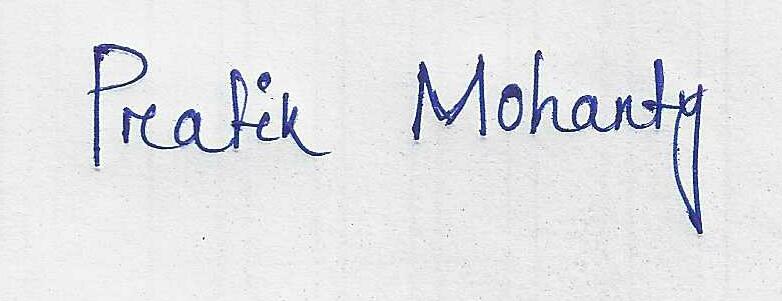 Pratik Mohanty